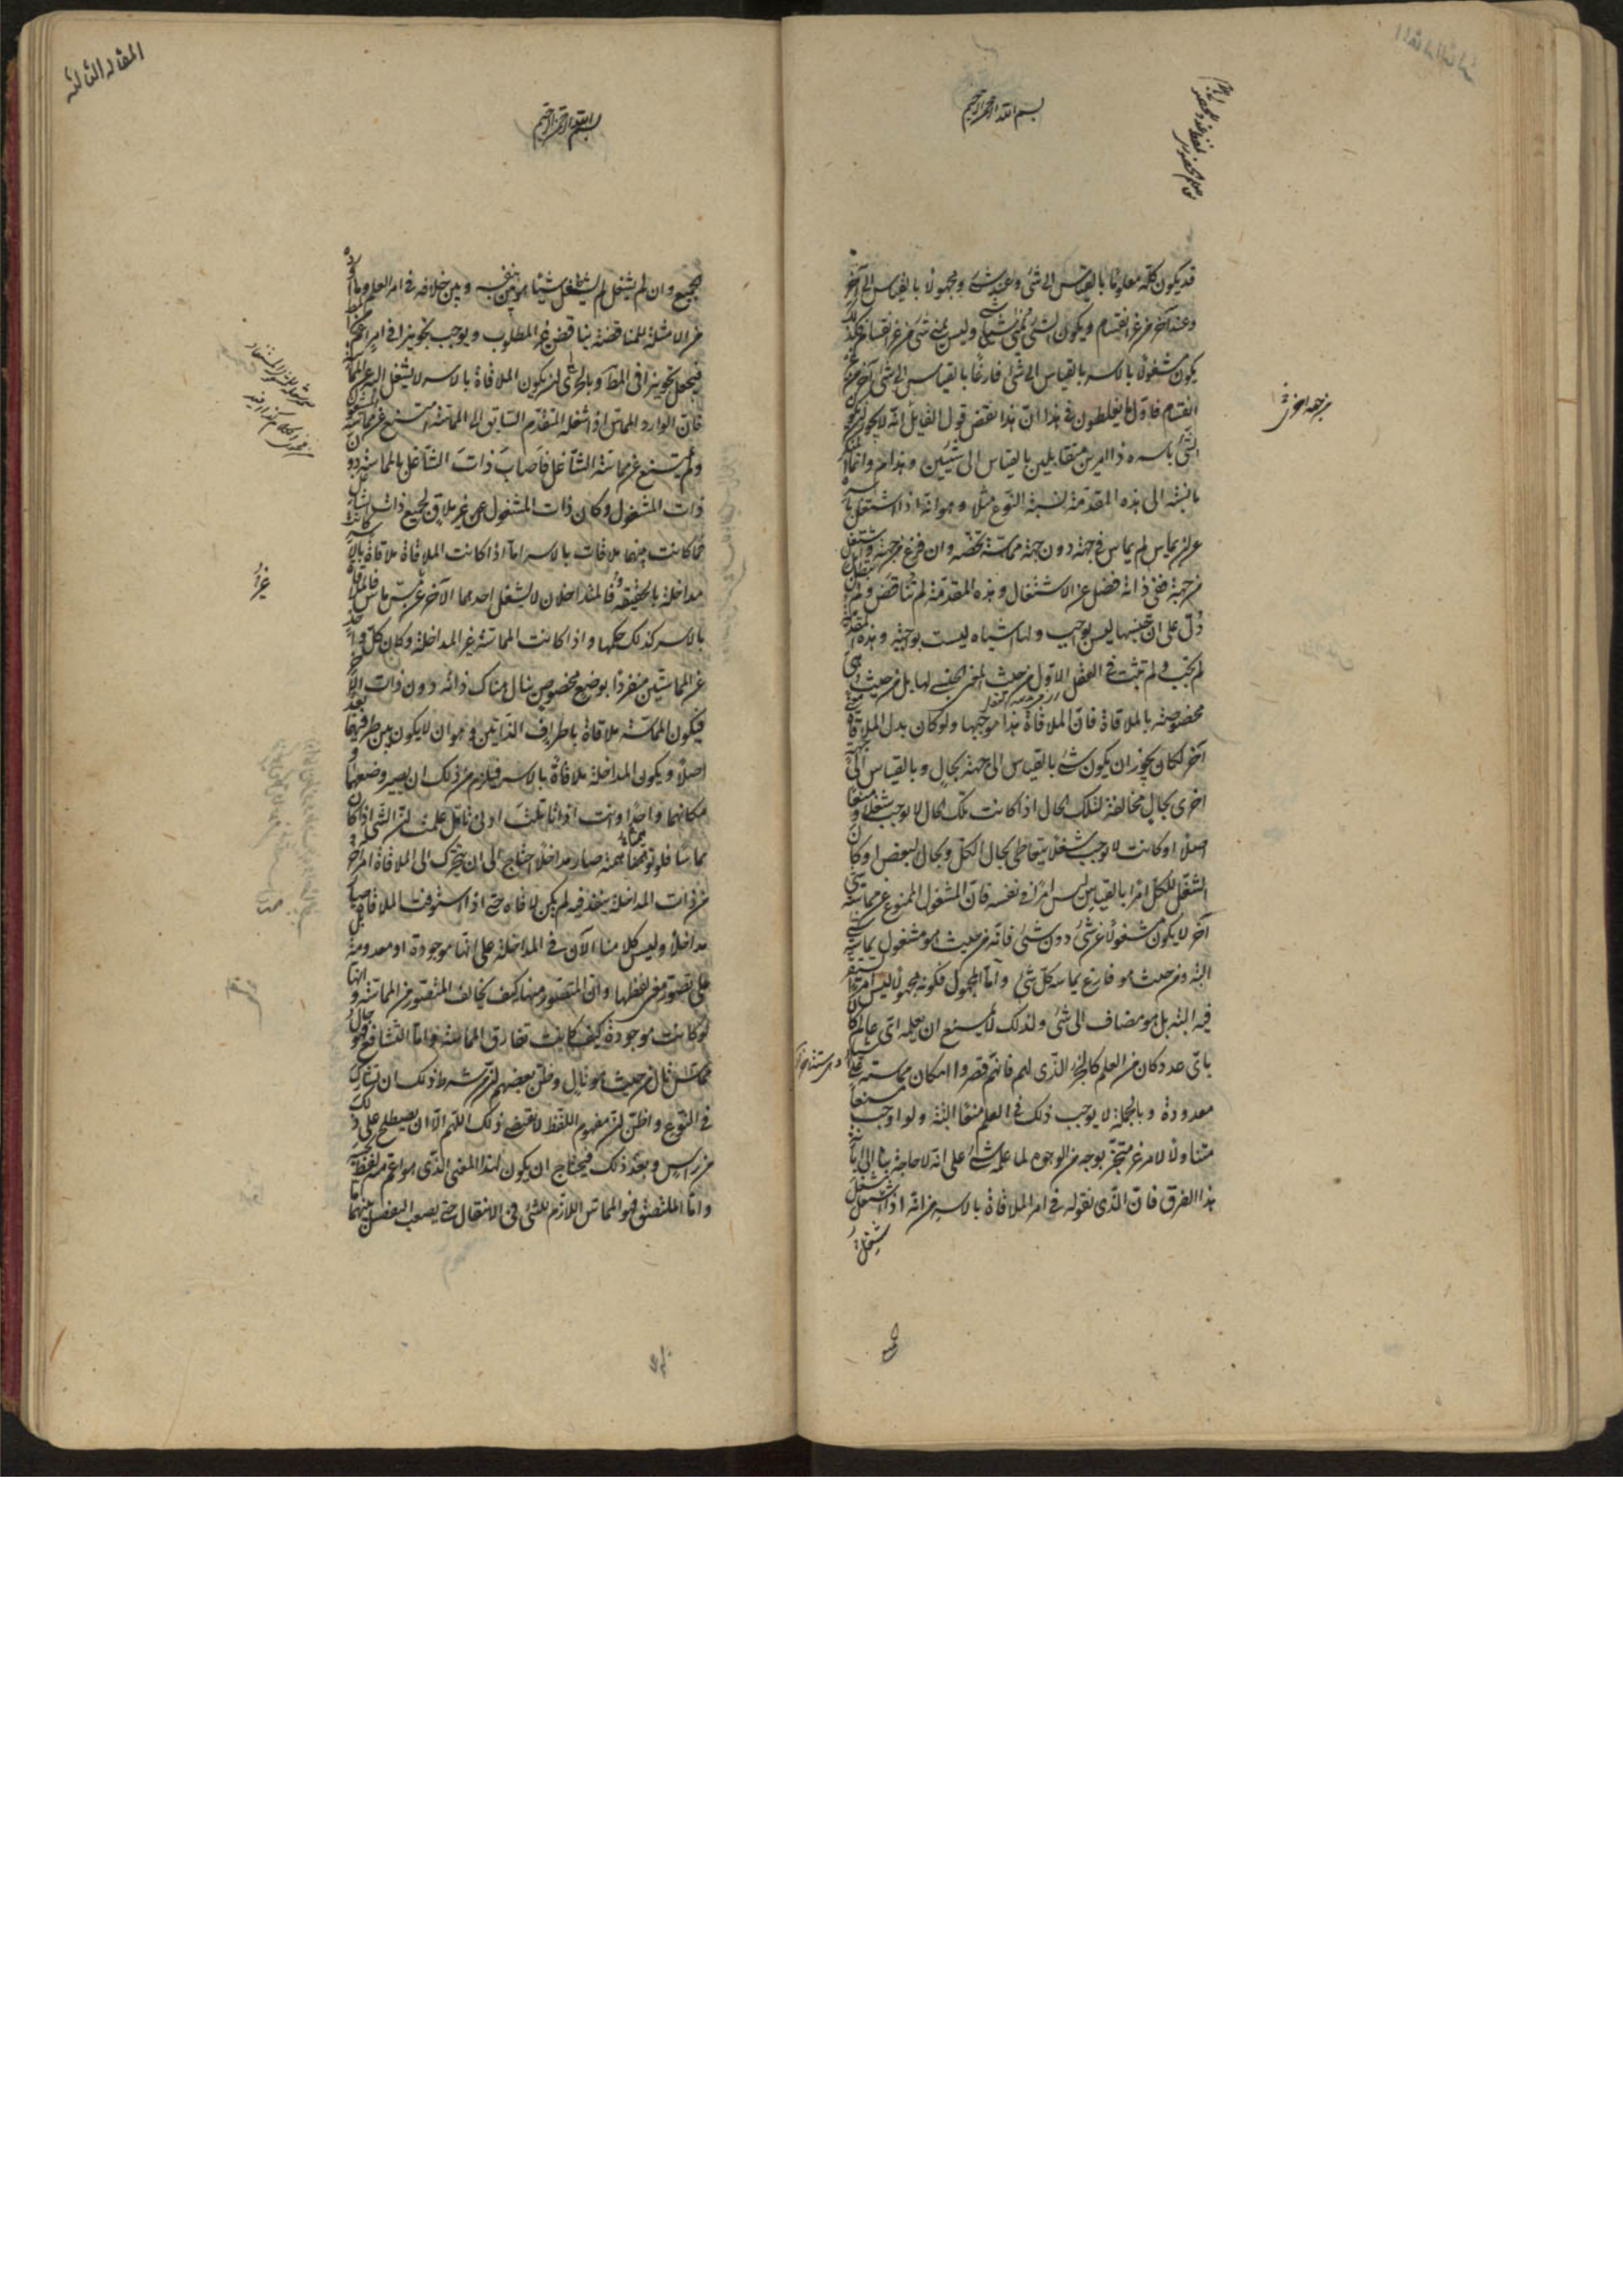 بسم الله الرحمن الرحيم
قد يكون كله معلومًا بالقياس الى شئ وعند شئ ومجهولًا بالقياس الى آخر
وعند آخر من غير انقسام ويكون الشئ يمنى شئ وليس يمنى شئ من غير انقسام فكذلك
يكون مشغولًا بالاسر بالقياس الى شئ فارغًا بالقياس الى شئ آخر من غير
انقسام فاول ما يغلطون فى هذا ان هذا نقض قول القائل انه لا يجوز ان يكون
الشئ باسره ذا امرين متقابلين بالقياس الى شيئين وهذا
بالنسبة الى هذه المقدمة نسبة النوع مثلا وهو انه اذا اشتغل باسره
عن ان يماس لم يماس فى جهة دون جهة مماسة تخصه وان فرغ من جهة واشتغل
من جهة ففى ذاته فضل عن الاشتغال وهذه المقدمة لم تناقض ولم تبطل بان
دل على ان جنسها ليس بواجب ولها اشباه ليست بواجبة وهذه المقدمة
لم تجب ولم تثبت فى العقل الاول من حيث المعنى الجنسى لها بل من حيث هى
مخصوصة بالملاقاة فان الملاقاة هذا موجبها ولو كان بدل الملاقاة معنى
آخر لكان يجوز ان يكون شئ بالقياس الى جهة بحال وبالقياس الى جهة
اخرى بحال مخالفة لتلك الحال اذا كانت تلك الحال لا توجب شغلا ومنعًا
اصلا او كانت لا توجب شغلا يتعاطى بحال الكل وبحال البعض او كان
الشغل للكل امرا بالقياس ليس امرا فى نفسه فان المشغول الممنوع عن مماسة شئ
آخر لا يكون مشغولًا عن شئ دون شئ فانه من حيث هو مشغول يماسه شئ
البتة ومن حيث هو فارغ يماسه كل شئ واما المجهول فكونه مجهولًا ليس امرًا
فيه البتة بل هو مضاف الى شئ ولذلك لا يمنع ان يعلمه اى عالم كان
باى عدد كان من العلم كالجزء الذى لهم فانهم قصروا امكان مماسته على ستة
معدودة وبالجملة لا يوجب ذلك فى العلم منعًا البتة ولو اوجب منعًا
متناولًا لامر غير متجز بوجه من الوجوه لما علمه شئ على انه لا حاجة بنا الى ابانة
هذا الفرق فان الذى نقوله فى امر الملاقاة بالاسر من انه اذا اشتغل شغل
من جهة اخرى
بسم الله الرحمن الرحيم
المقالة الثالثة
الجميع وان لم يشغل لم يشغل شيئا هو بين بنفسه وبين خلافه فى امر العلم وما اورده
من الامثلة للمناقضة يناقض غير المطلوب ويوجب تجويزا فى امر اعم
فيجعل تجويزا فى المطلوب وبالحرى ان يكون الملاقاة بالاسر لا يشغل البتة عن المماسة
فان الوارد المماس اذا شغله المتقدم السابق الى المماسة امتنع عن مماسة المشغول
ولم يمتنع عن مماسة الشاغل فاصاب ذات الشاغل بالمماسة دون
ذات المشغول وكان ذات المشغول عن غير ملاق لجميع ذات الشاغل
فما كانت بينهما ملاقات بالاسر اما اذا كانت الملاقاة ملاقاة بالاسر كانت
مداخلة بالحقيقة والمتداخلان لا يشغل احدهما الآخر عن مماس فالملاقاة
بالاسر كذلك حكمها واذا كانت المماسة غير المداخلة وكان كل واحد
من المماسين منفردًا بوضع مخصوص ينال هناك ذاته دون ذات الآخر
فيكون المماسة ملاقاة باطراف الذاتين وهو ان لا يكون بين طرفيهما بعد
اصلا ويكون المداخلة ملاقاة بالاسر فيلزم من ذلك ان يصير وضعهما و
مكانهما واحدًا وانت اذا تاملت ادنى تامل علمت ان الشئ اذا كان
مماسًا فلو توهمناه بعينه صار مداخلًا احتاج الى ان يتحرك الى الملاقاة امر آخر
من ذات المداخلة ينفذ فيه لم يكن لاقاه حتى اذا استوفيت الملاقاة صار
مداخلًا وليس كلامنا الآن فى المداخلة على انها موجودة او معدومة بل
على تصور معنى لفظها وان المتصور منها كيف يخالف المتصور من المماسة وانها
لو كانت موجودة كيف كانت تفارق المماسة واما التشافع فهو حال
مماس تال من حيث هو تال وظن بعضهم ان من شرط ذلك ان تشارك
فى النوع واظن ان مفهوم اللفظ لا يقتضى ذلك اللهم الا ان يصطلح على ذلك
من راس وبعد ذلك فيحتاج ان يكون لهذا المعنى الذى هو اعم منه لفظ
واما الملتصق فهو المماس اللازم للشئ فى الانتقال حتى يصعب التفصيل بينهما